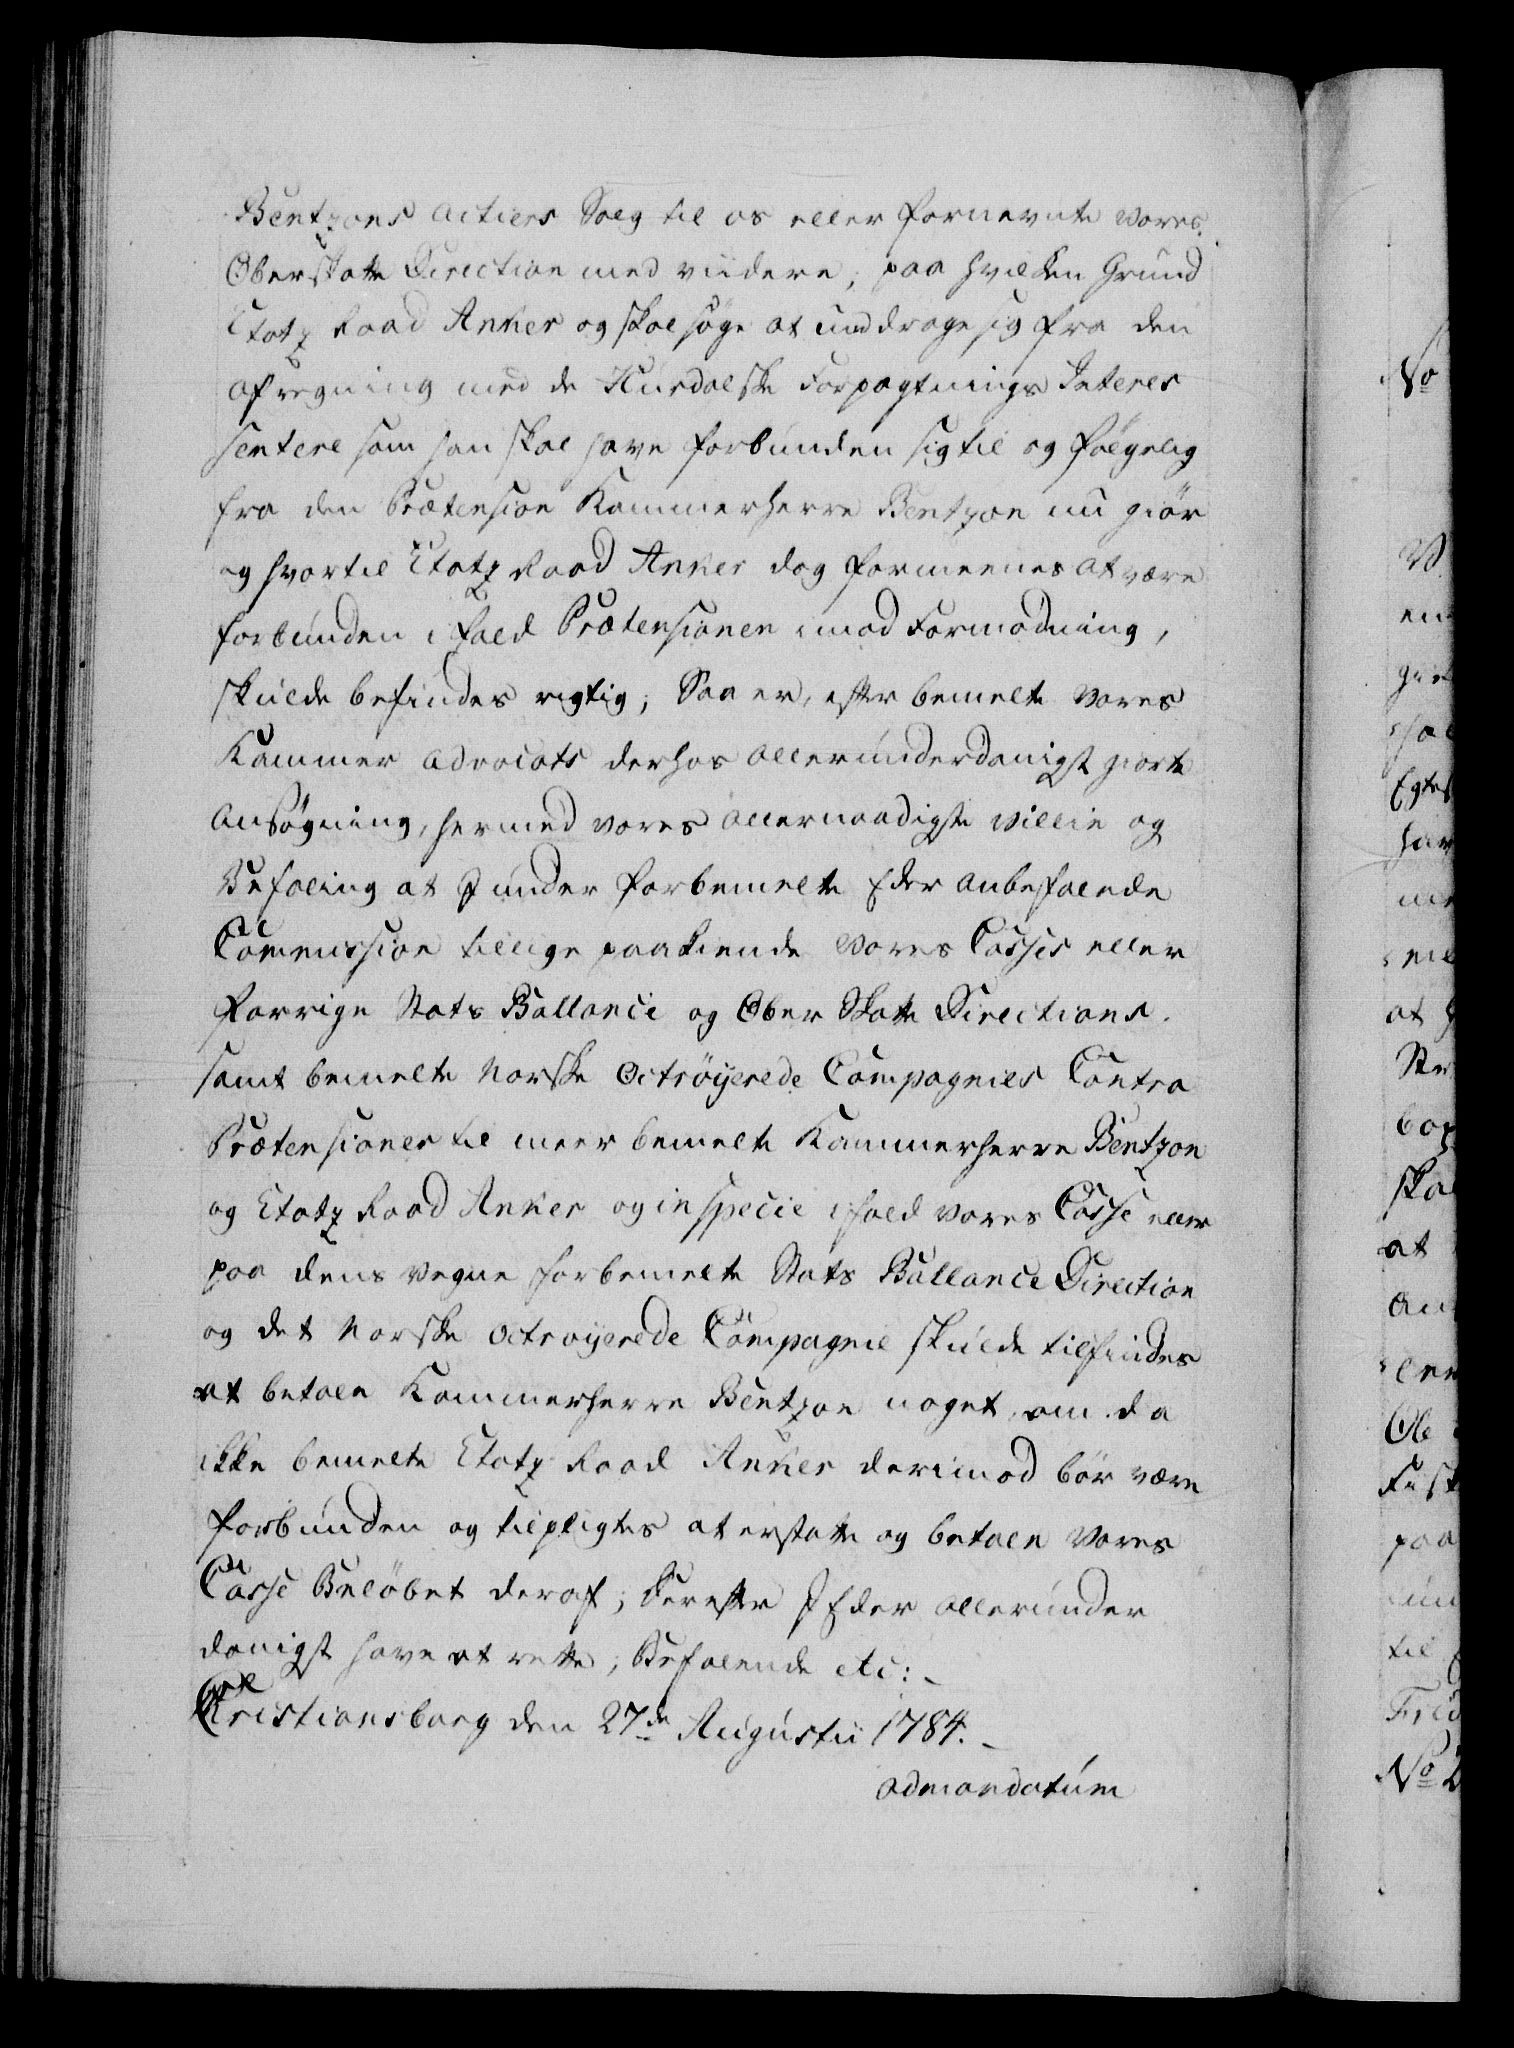 Bentzons Actiers Salg til os eller fornevnte vores
Oberskatte Direction med viidere; paa hvilken Grund
Etatz Raad Anker og skal søge at unddrage sig fra den
afregning med de Hurdalske Forpagtnings Interes
sentere som han skal have forbunden sig til og følgelig
fra den Prætension Kammerherre Bentzon nu giør
og hvortil Etatz Raad Anker dog formeenes at være
forbunden ifald Prætensionen imod Formodning,
skulde befindes rigtig; Saa er, efter bemelte vores
Kammer Advocats derhos allerunderdanigst giorte
Ansøgning, hermed vores allernaadigste villie og
Befaling at I under forbemelte Eder anbefalede
Commission tillige paakiende vores Casses eller
forrige Stats Ballance og Ober Skatte Directions.
samt bemelte Norske Octrøyerede Compagnies Contra
Prætensioner til meerbemelte Kammerherre Bentzon
og Etatz Raad Anker og in specie ifald vores Casse eller
paa dens vegne forbemelte Stats Ballance Direction
og det Norske octroyerede Compagnie skulde tilfindes
at betale Kammerherre Bentzon noget, om da
ikke bemelte Etatz Raad Anker derimod bør være
forbunden og tilpligtes at erstatte og betale vores
Casse Beløbet deraf; Derefter I Eder allerunder
danigst have at rette; Befalende etc:
Christiansborg den 27de Augustii 1784.
ad mandatum
No
V
en
at
skal
at
paa
til
No 2